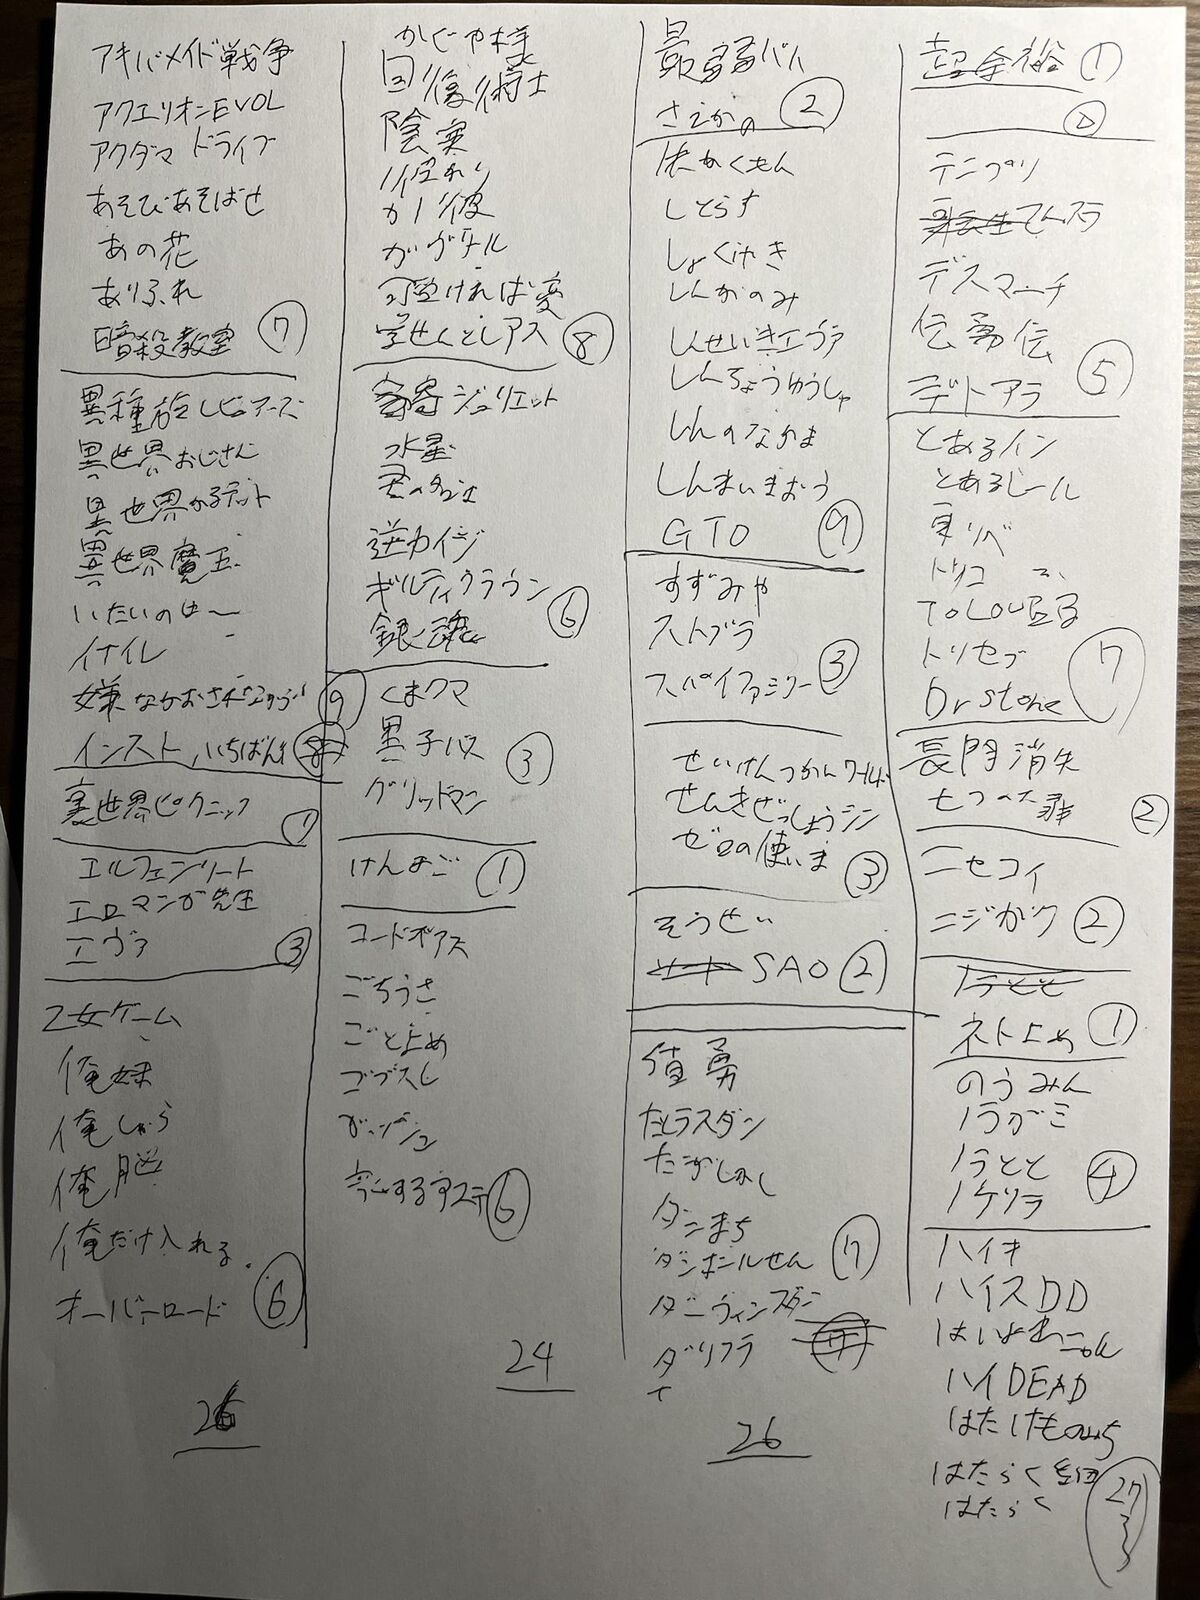 アキバメイド戦争
アクエリオンEVOL
アクダマ ドライブ
あそびあそばせ
あの花
ありふれ
暗殺教室 ⑦
異種族レビュアーズ
異世界おじさん
異世界かるてっと
異世界魔王
いたいのは〜
イナイレ
嫌
インスト, いちばんうし
裏世界ピクニック ①
エルフェンリート
エロマンガ先生
エヴァ ③
乙女ゲーム
俺妹
俺しゅら
俺脳
俺だけ入れる
オーバーロード ⑥
26
かぐや様
回復術士
陰実
カノ彼
ガヴリール
可愛ければ変
⑧
寄宿ジュリエット
水星
逆カイジ
ギルティクラウン
銀魂 ⑥
くまクマ
黒子バス ③
グリッドマン
けんまご ①
コードギアス
ごちうさ
ごとよめ
ゴブスレ
⑥
24
最弱バハ
さえかの ②
しとらす
しょくげき
しんかのみ
しんせいきエヴァ
しんちょうゆうしゃ
しんのなかま
しんまいまおう
GTO ⑨
すずみや
ストブラ
スパイファミリー ③
せいけんつかいワールド
せんきぜっしょうシン
ゼロの使いま ③
そうせい
SAO ②
盾勇
たとラスダン
だがしかし
ダンまち
ダンボールせん ⑦
ダーウィンズゲーム
ダリフラ
26
超余裕 ①
テニプリ
てんスラ
デスマーチ
伝勇伝
デートアラ ⑤
とあるイン
とあるレール
東リベ
トリコ
ToLOVEる
トリセブ ⑦
Dr Stone
長門消失
七つの大罪 ②
ニセコイ
ニジガク ②
ノラとと
ネトよめ ①
のうみん
ノラガミ
ノラとと ④
ノケリラ
ハイキ
ハイスDD
はいよれニャル
ハイDEAD
はたけものみち
はたらく細胞
はたらく
27